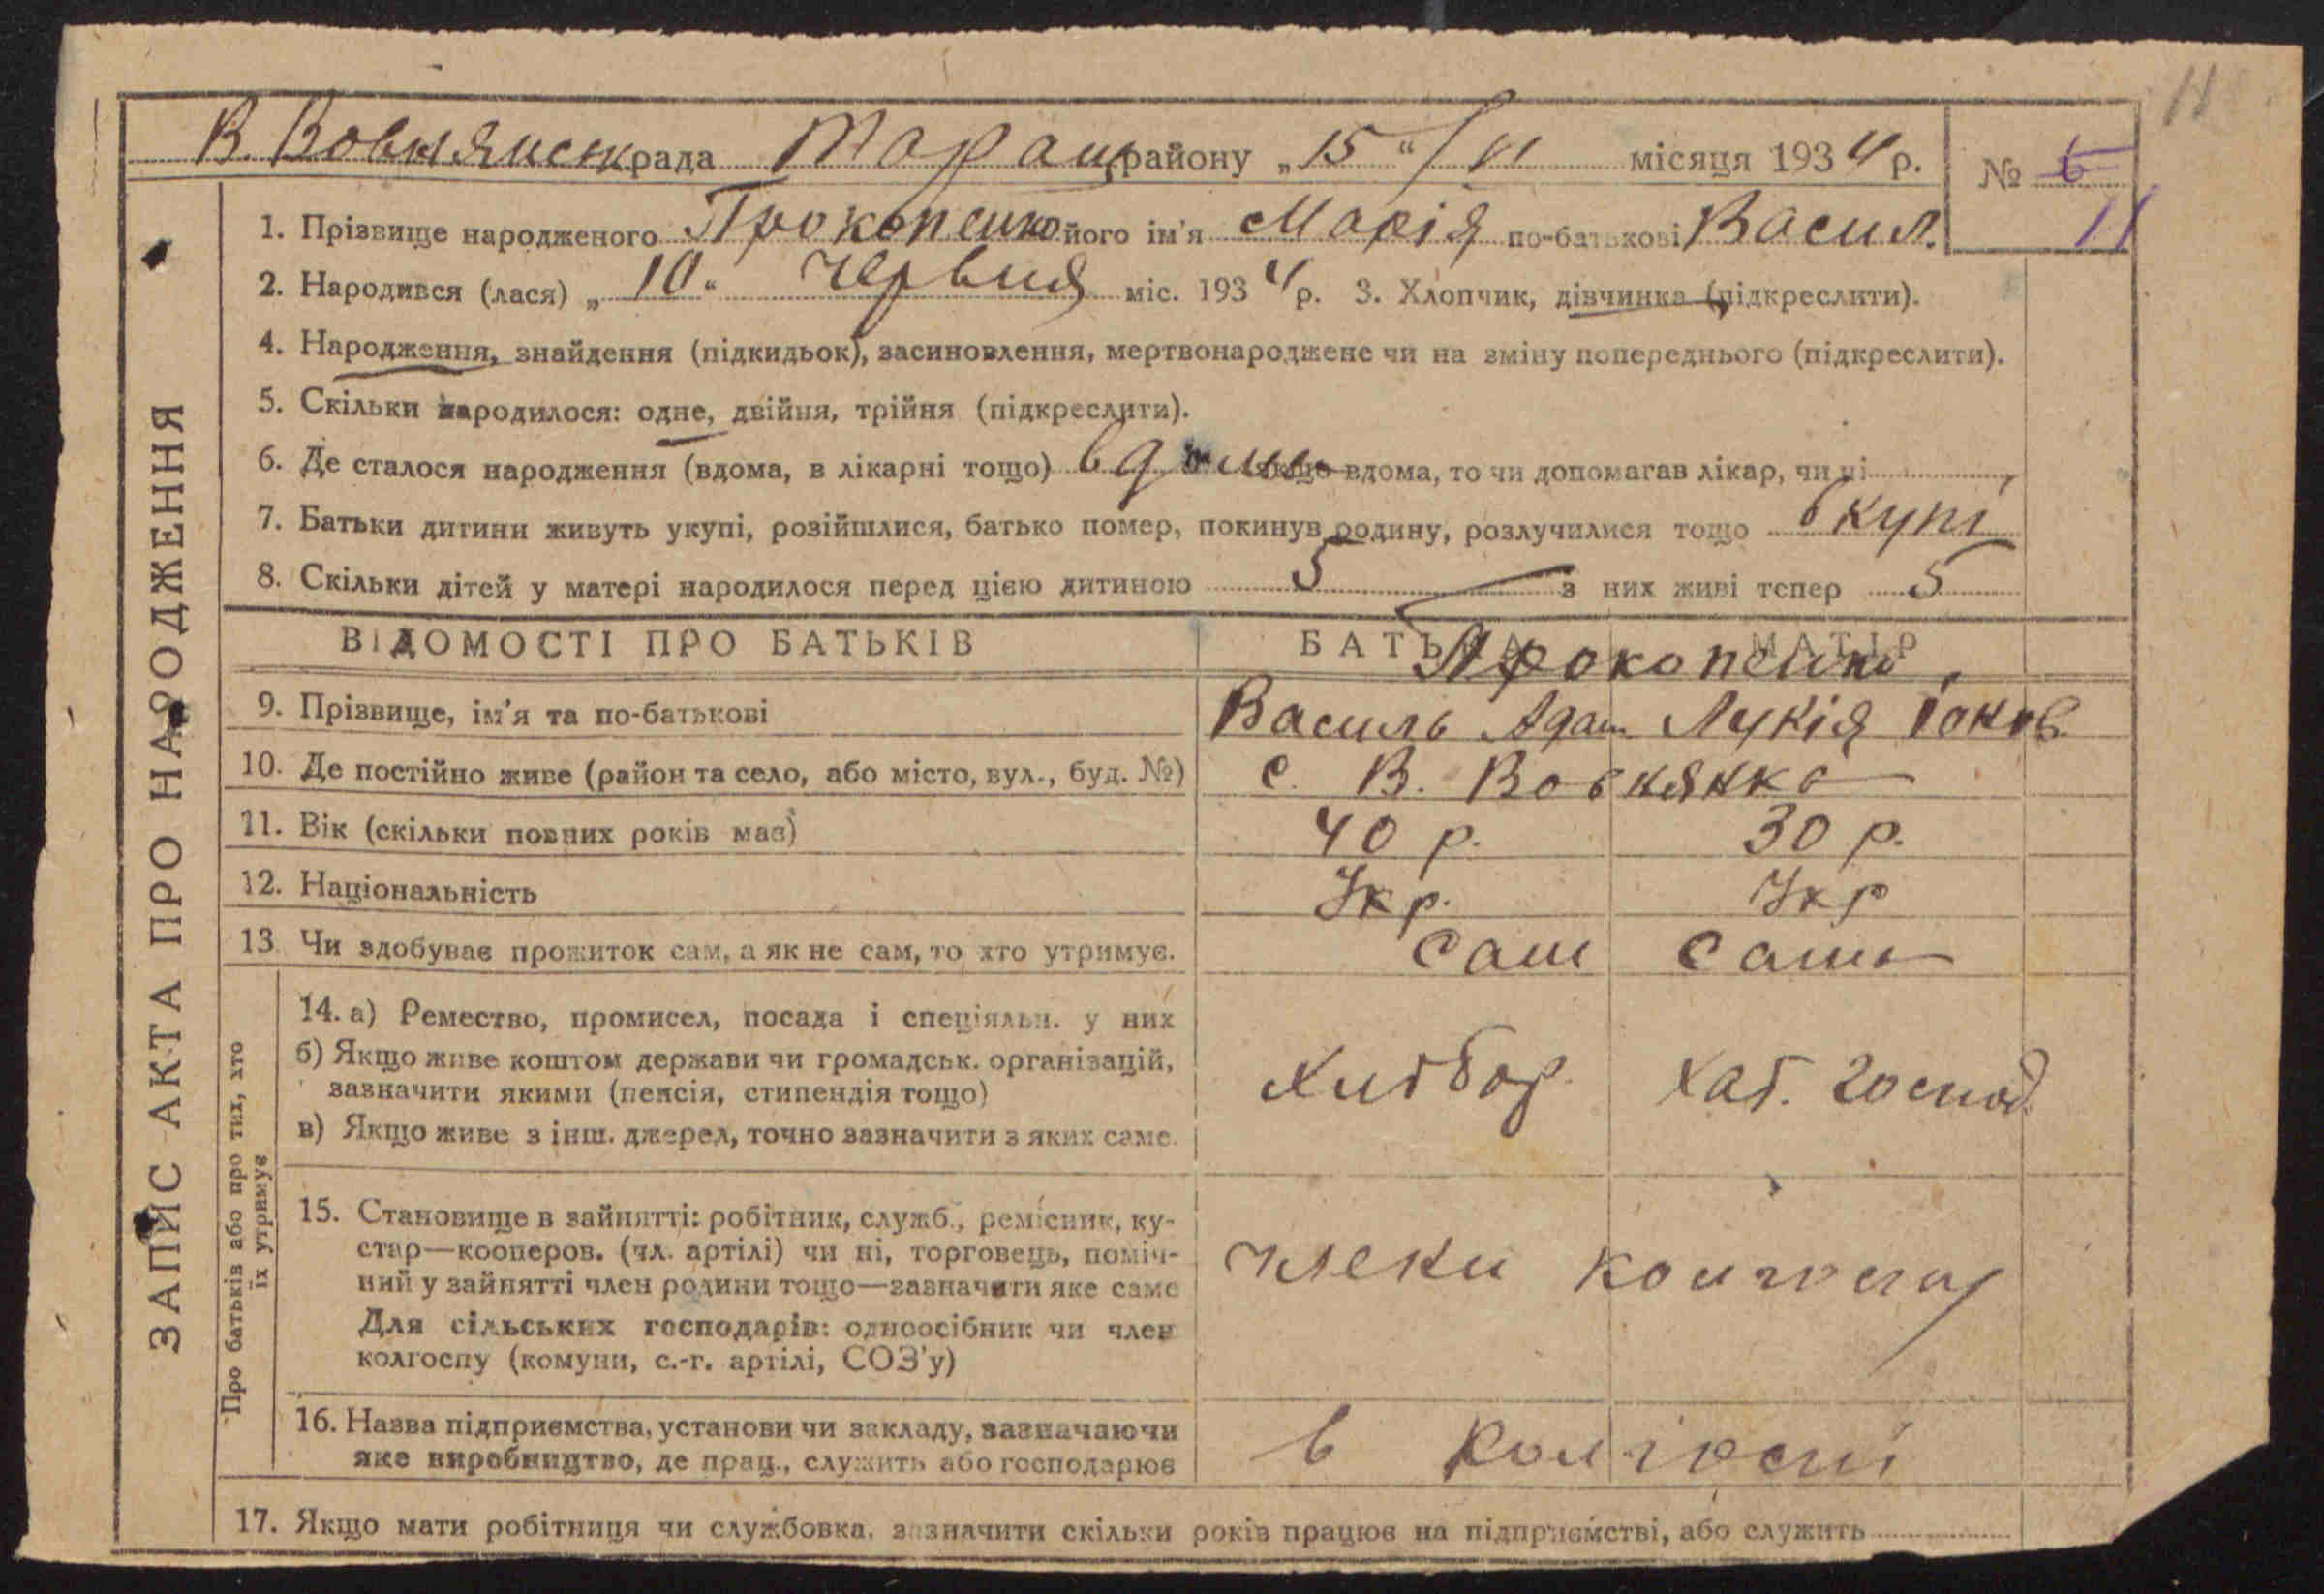 11
В. Вовнянськ рада Таращ району „15“ / VI місяця 1934 р.
№ 6
11
1. Прізвище народженого Прокопенко його ім'я Марія по-батькові Васил.
2. Народився (лася) „10“ червня міс. 1934 р. 3. Хлопчик, дівчинка (підкреслити).
4. Народження, знайдення (підкидьок), засиновлення, мертвонароджене чи на зміну попереднього (підкреслити).
5. Скільки народилося: одне, двійня, трійня (підкреслити).
6. Де сталося народження (вдома, в лікарні тощо) вдома якщо вдома, то чи допомагав лікар, чи ні
7. Батьки дитини живуть укупі, розійшлися, батько помер, покинув родину, розлучилися тощо вкупі
8. Скільки дітей у матері народилося перед цією дитиною 5 з них живі тепер 5
ВІДОМОСТІ ПРО БАТЬКІВ БАТЬКА МАТІР
Прокопенко
9. Прізвище, ім'я та по-батькові Василь Адам. Лукія Іоков.
10. Де постійно живе (район та село, або місто, вул., буд. №) с. В. Вовнянка
11. Вік (скільки повних років має) 40 р. 30 р.
12. Національність Укр. Укр
13 Чи здобуває прожиток сам, а як не сам, то хто утримує. сам сама
14. а) Ремество, промисел, посада і спеціяльн. у них
б) Якщо живе коштом держави чи громадськ. організацій,
зазначити якими (пенсія, стипендія тощо)
хлібор. хат. господ.
в) Якщо живе з інш. джерел, точно зазначити з яких саме.
15. Становище в зайнятті: робітник, служб., ремісник, ку-
стар—кооперов. (чл. артілі) чи ні, торговець, поміч-
ний у зайнятті член родини тощо—зазначити яке саме
члени колгоспу
Для сільських господарів: одноосібник чи член
колгоспу (комуни, с.-г. артілі, СОЗ'у)
16. Назва підприємства, установи чи закладу, зазначаючи
яке виробництво, де прац., служить або господарює
в колгоспі
17. Якщо мати робітниця чи службовка, зазначити скільки років працює на підприємстві, або служить
ЗАПИС АКТА ПРО НАРОДЖЕННЯ
Про батьків або про тих, хто
їх утримує